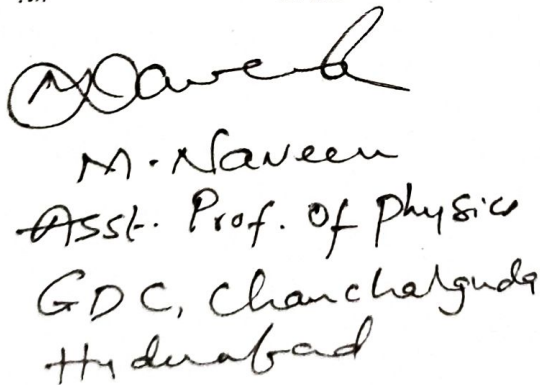 Naveen
M. Naveen
Asst. Prof. of Physics
GDC, Chanchalguda
Hyderabad